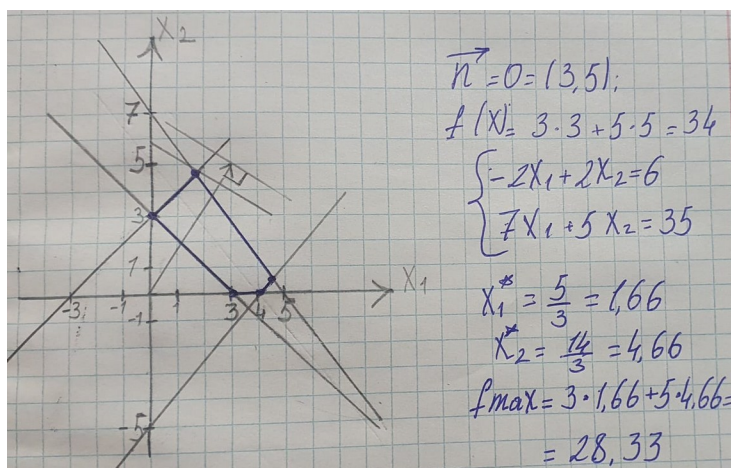 X₂
7
5
3
1
X₁
-3
-1
1
3
4
5
-1
-5
n⃗=0=(3,5);
f(X)= 3·3+5·5=34
-2X₁+2X₂=6
7X₁+5X₂=35
X₁*=5/3=1,66
X*₂=14/3=4,66
fmax=3·1,66+5·4,66=
=28,33